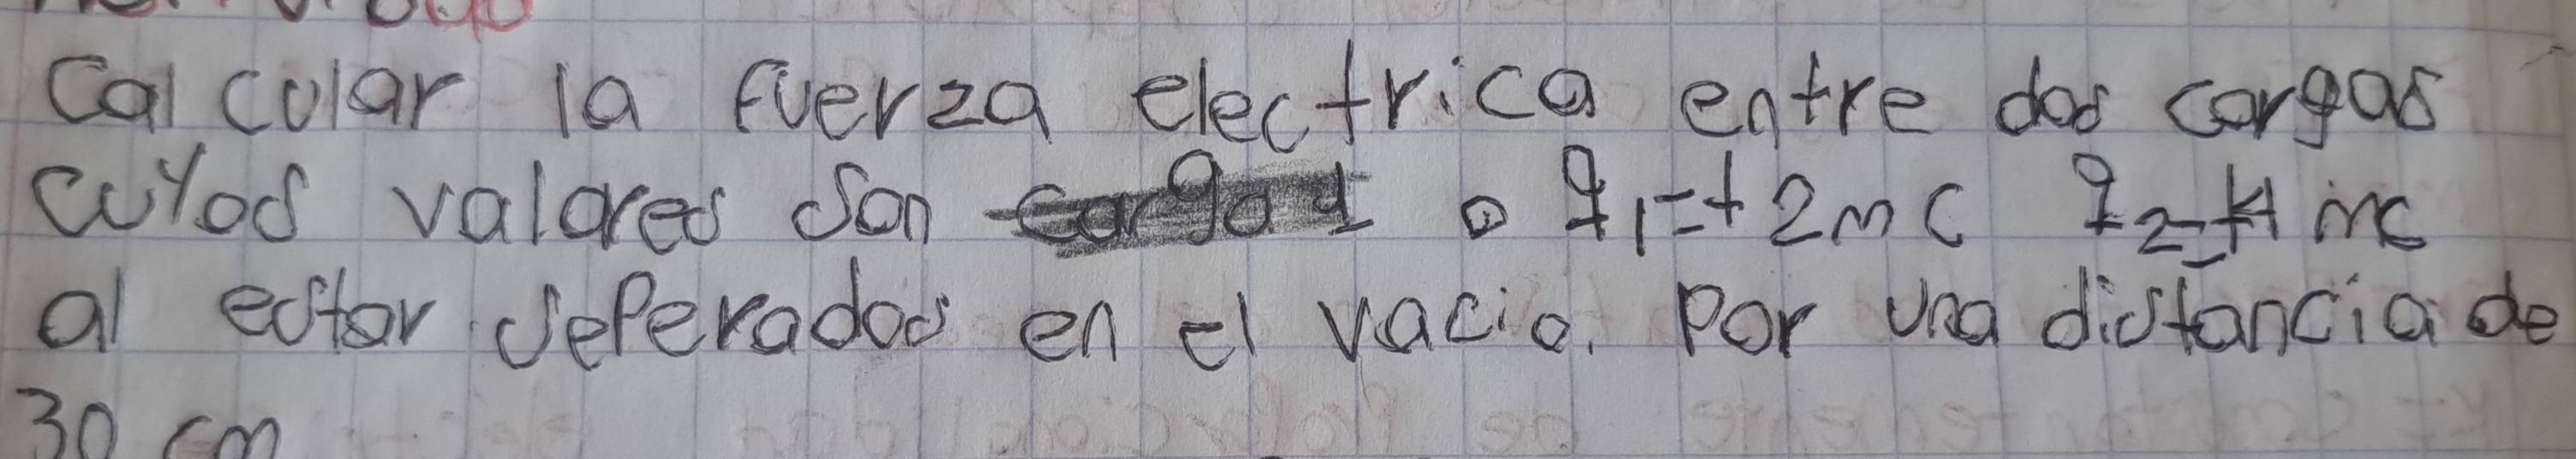 Calcular la fuerza electrica entre dos cargas
cuyos valores son o q1=+2mC q2=+4 mc
al estar seperados en el vacio. Por una distancia de
30 cm